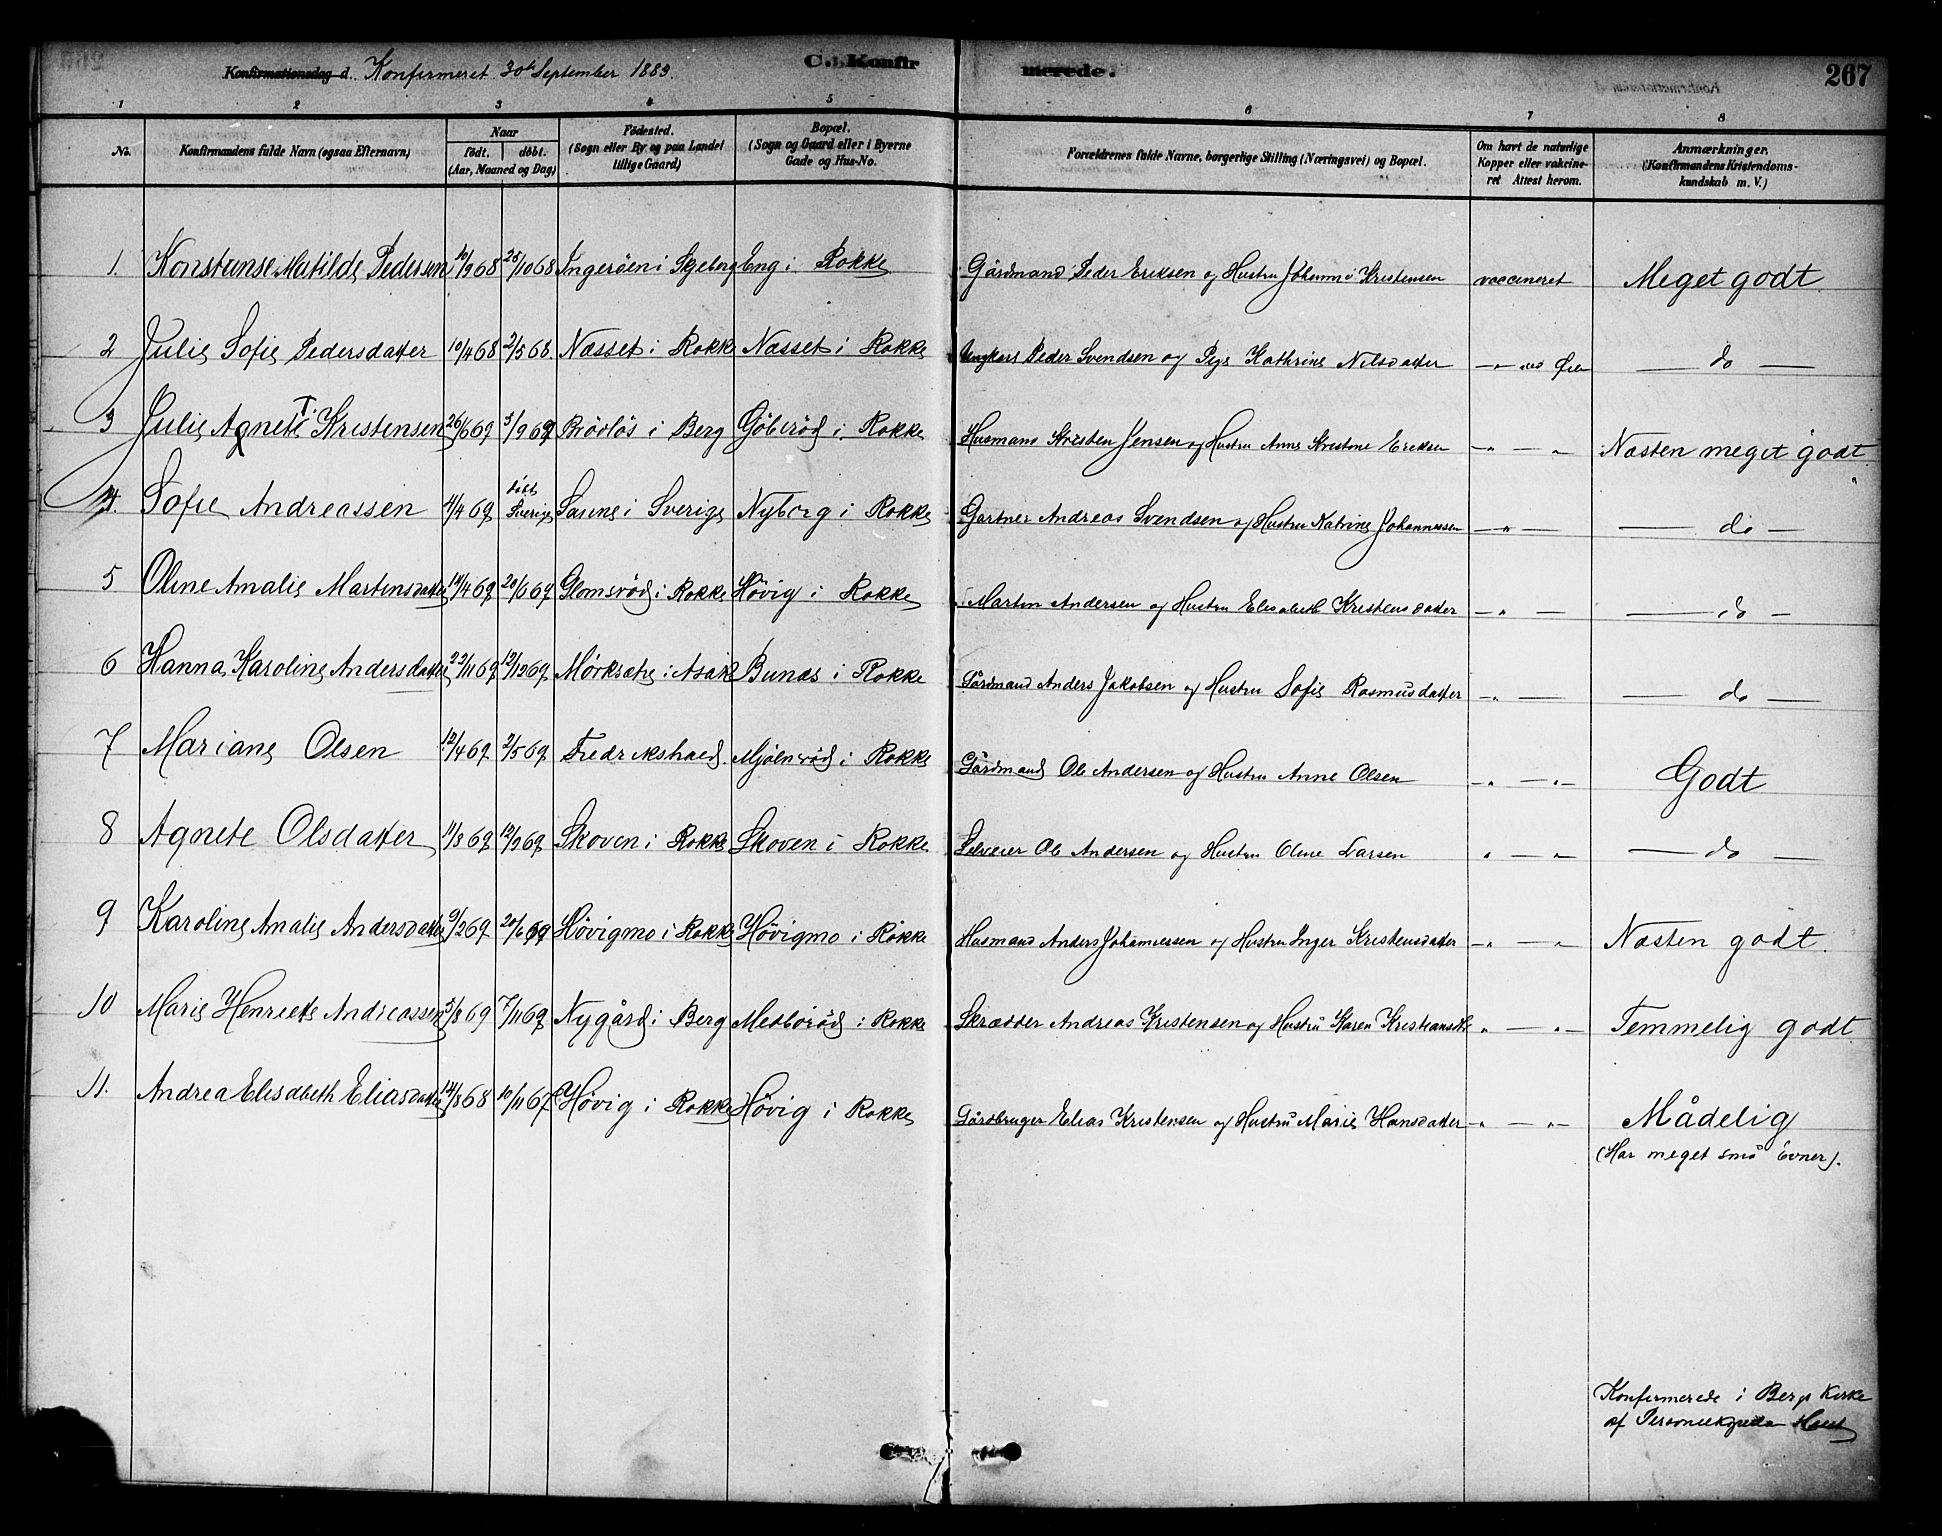 Konfirmationsdag d. Konfirmeret 30te September 1883. C. Konfirmerede. 267
1 2 3 4 5 6 7 8
No. Konfirmandens fulde Navn (ogsaa Efternavn) Naar født. døbt. (Aar, Maaned og Dag) Fødested. (Sogn eller By og paa Landet tillige Gaard) Bopæl. (Sogn og Gaard eller i Byerne Gade og Hus-No. Forældrenes fulde Navne, borgerlige Stilling (Næringsvei) og Bopæl. Om havt de naturlige Kopper eller vakcineret Attest herom. Anmærkninger. (Konfirmandens Kristendomskundskab m. V.)
1. Konstanse Matilde Pedersen 10/9 68 25/10 68 Ingerøen i Skjeberg Eng i Rokke Gårdmand Peder Eriksen og Hustru Johanne Kristensen vaccineret Meget godt
2 Julie Sofie Pedersdatter 10/4 68 2/5 68 Næsset i Rokke Næsset i Rokke Ungkarl Peder Svendsen og Pige Kathrine Nilsdatter — " — do —
3 Julie Agnete T. Kristensen 26/6 69 5/9 69 Brødløs i Berg Gøberød i Rokke Husmand Kristen Jensen og Hustru Anne Kristine Eriksen — " — " Næsten meget godt
4. Sofie Andreassen 4/4 69 døbt Sverige i Sverige Nyborg i Rokke Gartner Andreas Svendsen og Hustru Katrine Johannessen — " — — do —
5 Oline Amalie Martinsdatter 14/4 69 20/6 69 Glomsrød i Rokke Høvig i Rokke Martin Andersen og Hustru Elisabeth Kristensdatter — " — — do —
6 Hanna Karoline Andersdatter 22/11 69 12/12 69 Mørksæter i Asak Bunæs i Rokke Gårdmand Anders Jakobsen og Hustru Sofie Rasmusdatter — " — — do —
7 Mariane Olsen 12/4 69 2/5 69 Fredrikshald Mjølnrød i Rokke Gårdmand Ole Andersen og Hustru Anne Olsen — " — " — Godt
8 Agnete Olsdatter 11/8 69 12/9 69 Skoven i Rokke Skoven i Rokke Selveier Ole Andersen og Hustru Oline Larsen " — " — do —
9 Karoline Amalie Andersdatter 9/2 69 20/6 69 Høvigmo i Rokke Høvigmo i Rokke Husmand Anders Johannessen og Hustru Inger Kristensdatter — " — " Næsten godt.
10 Marie Henriette Andreassen 5/8 69 7/11 69 Nygård i Berg Medbørød i Rokke Skrædder Andreas Kristensen og Hustru Karen Kristiansdt " — " — Temmelig godt
11. Andrea Elisabeth Eliasdatter 14/8 68 10/11 67 Høvig i Rokke Høvig i Rokke Gårdbruger Elias Kristensen og Hustru Marie Hansdatter — " — " — Mådelig
(Har meget små Evner).
Konfirmerede i Bergs Kirke
af Personelkapellan